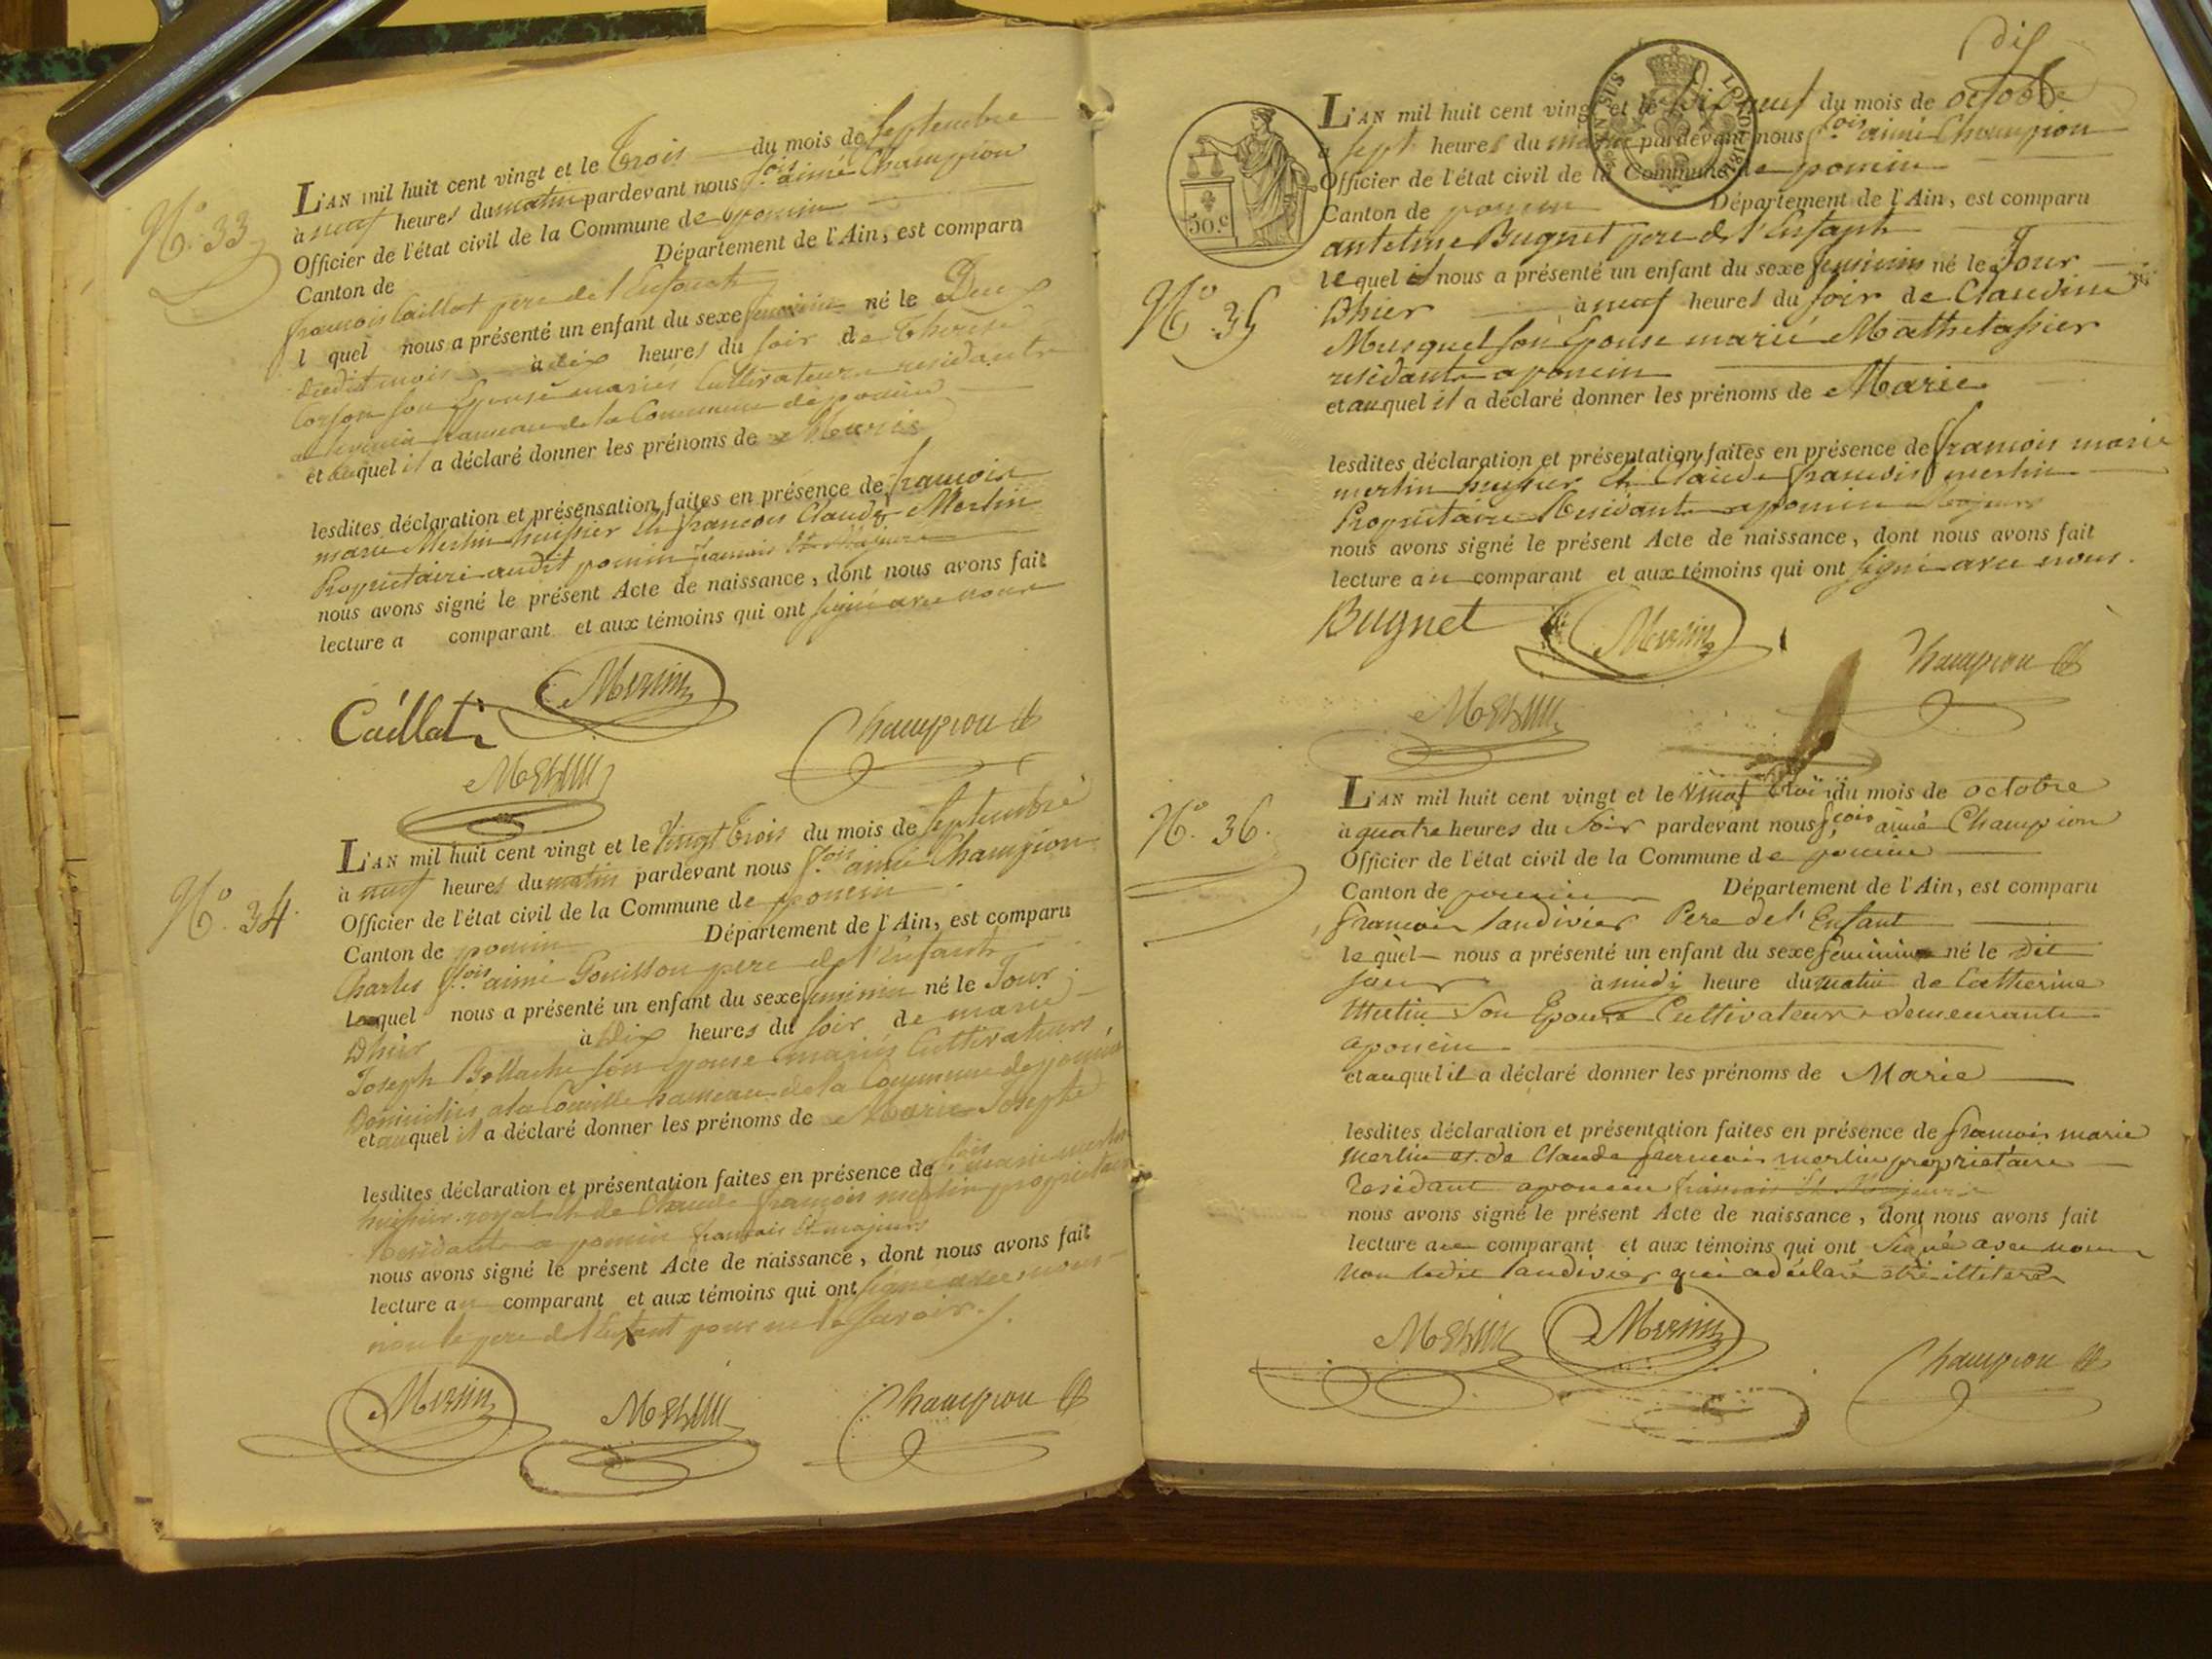 N.º 33
L'AN mil huit cent vingt et le Trois du mois de Septembre
à neuf heures du matin pardevant nous f.ois aimé Champion
Officier de l'état civil de la Commune de poncin
Canton de Département de l'Ain, est comparu
francois Caillat pere de l'Enfant
l quel nous a présenté un enfant du sexe feminin né le Deux
dudit mois à dix heures du soir de Therese
son Epouse mariés Cultivateurs residants
hameau de la Commune de poncin
et auquel il a déclaré donner les prénoms de Marie
lesdites déclaration et présensation faites en présence de francois
marie Merlin huissier et francois Claude Merlin
Proprietaire audit poncin francais et Majeurs
nous avons signé le présent Acte de naissance, dont nous avons fait
lecture a comparant et aux témoins qui ont signé avec nous
Caillat Merlin
Merlin Champion
N.º 34.
L'AN mil huit cent vingt et le Vingt Trois du mois de Septembre
à neuf heures du matin pardevant nous f.ois aimé Champion
Officier de l'état civil de la Commune de poncin
Canton de poncin Département de l'Ain, est comparu
Charles f.ois aimé Gouillon pere de l'Enfant
lequel nous a présenté un enfant du sexe feminin né le Jour
Dhier à Dix heures du soir de marie
Joseph son Epouse mariés Cultivateurs,
Domiciliés a la hameau de la Commune de poncin
et auquel il a déclaré donner les prénoms de Marie Josephe
lesdites déclaration et présentation faites en présence de f.ois marie merlin
huissier royal et de Claude francois merlin proprietaire
Residants a poncin francais et majeurs
nous avons signé le présent Acte de naissance, dont nous avons fait
lecture au comparant et aux témoins qui ont signé avec nous
non le pere de l'Enfant pour ne le savoir.
Merlin Merlin Champion
50.c
N.º 35
L'AN mil huit cent vingt et le dix neuf du mois de octobre
à sept heures du matin pardevant nous f.ois aimé Champion
Officier de l'état civil de la Commune de poncin
Canton de poncin Département de l'Ain, est comparu
antelme Bugnet pere de l'Enfant
le quel il nous a présenté un enfant du sexe feminin né le Jour
Dhier à neuf heures du soir de Claudine
Musquet son Epouse marié
residants a poncin
et auquel il a déclaré donner les prénoms de Marie
lesdites déclaration et présentation faites en présence de francois marie
merlin huissier et Claude francois merlin
Proprietaire Residants a poncin Majeurs
nous avons signé le présent Acte de naissance, dont nous avons fait
lecture au comparant et aux témoins qui ont signé avec nous.
Bugnet Merlin
Merlin Champion
N.º 36.
L'AN mil huit cent vingt et le vingt trois du mois de octobre
à quatre heures du Soir pardevant nous f.cois aimé Champion
Officier de l'état civil de la Commune de poncin
Canton de poncin Département de l'Ain, est comparu
francois landivier Pere de l'Enfant
le quel nous a présenté un enfant du sexe feminin né le dit
jour à midi heure du matin de Catherine
Son Epouse Cultivateurs demeurants
a poncin
et auquel il a déclaré donner les prénoms de Marie
lesdites déclaration et présentation faites en présence de francois marie
Merlin et de Claude francois merlin proprietaire
Residant a poncin francais et Majeurs
nous avons signé le présent Acte de naissance, dont nous avons fait
lecture au comparant et aux témoins qui ont Signé avec nous
non ledit landivier qui a déclaré etre illiteré
Merlin Merlin Champion